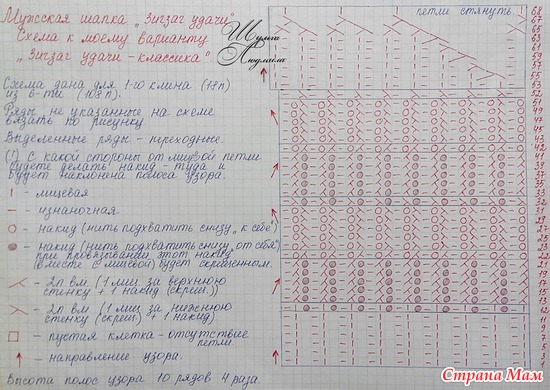 Мужская шапка „Зигзаг удачи"
Схема к моему варианту
„Зигзаг удачи - классика"
Людмила
петли стянуть.
Схема дана для 1-го клина (18п)
из 6-ти (108 п).
Ряды не указанные на схеме
вязать по рисунку
Выделенные ряды - переходные.
(!) С какой стороны от лицевой петли
будите делать накид - туда и
будет наклонена полоса узора.
- лицевая
- изнаночная
- накид (нить подхватить снизу „к себе")
- накид (нить подхватить снизу „от себя")
при провязывании этот накид
(вместе с лицевой) будет скрещенным.
- 2п вм (1 лиц за верхнюю
стенку + 1 накид (скрещ))
- 2п вм (1 лиц за нижнюю
стенку (скрещ) + 1 накид)
- пустая клетка - отсутствие
петли
- направление узора.
Высота полос узора 10 рядов 4 раза.
68
67
65
63
61
59
57
55
53
52
51
49
47
45
43
42
41
39
37
35
33
32
31
29
27
25
23
22
21
19
17
15
13
12
11
9
7
5
3
Страна Мам